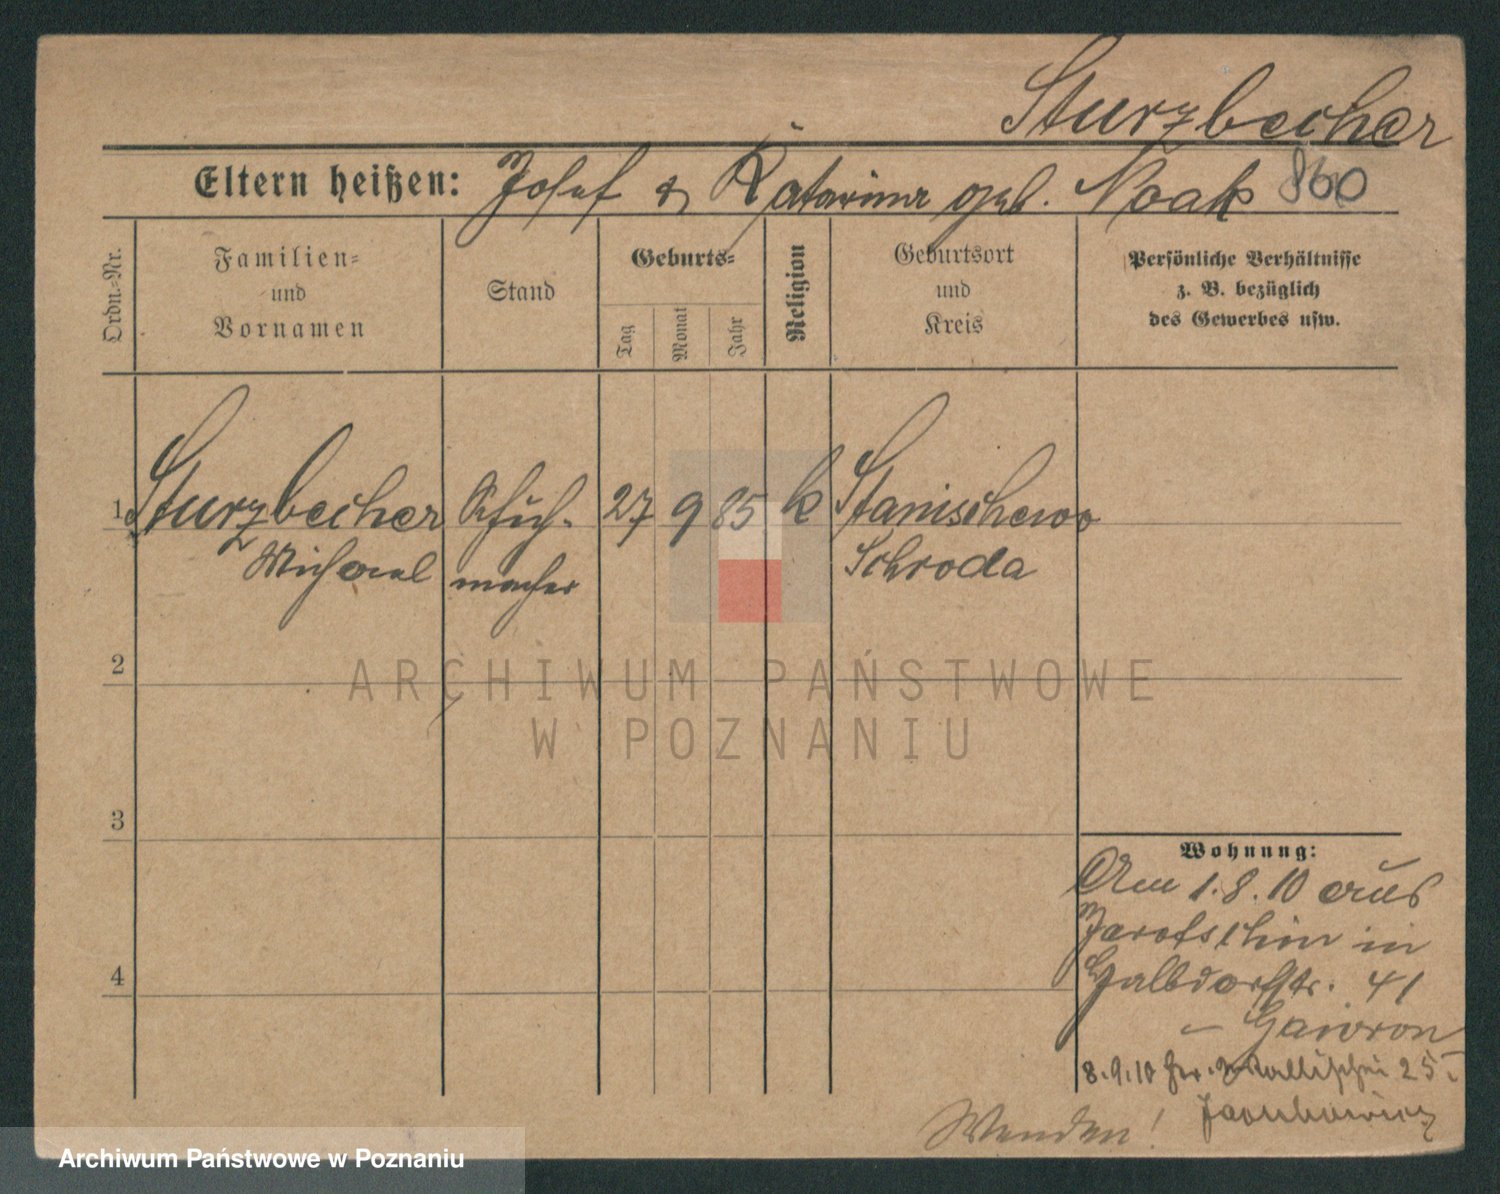 Sturzbecher
Eltern heißen: Josef & Katarina geb. Noak 860
Ordn.-Nr.
Familien-
und
Vornamen
Stand
Geburts-
Tag
Monat
Jahr
Religion
Geburtsort
und
Kreis
Persönliche Verhältnisse
z. B. bezüglich
des Gewerbes usw.
1 Sturzbecher Schuh- 27 9 85 k Stanischewo
Michael macher Schroda
2
ARCHIWUM PAŃSTWOWE
W POZNANIU
3
Wohnung:
Am 1.8.10 aus
Jarotschin in
Halbdorfstr. 41
4
– Gawron
8.9.10 25
Wenden!
Archiwum Państwowe w Poznaniu